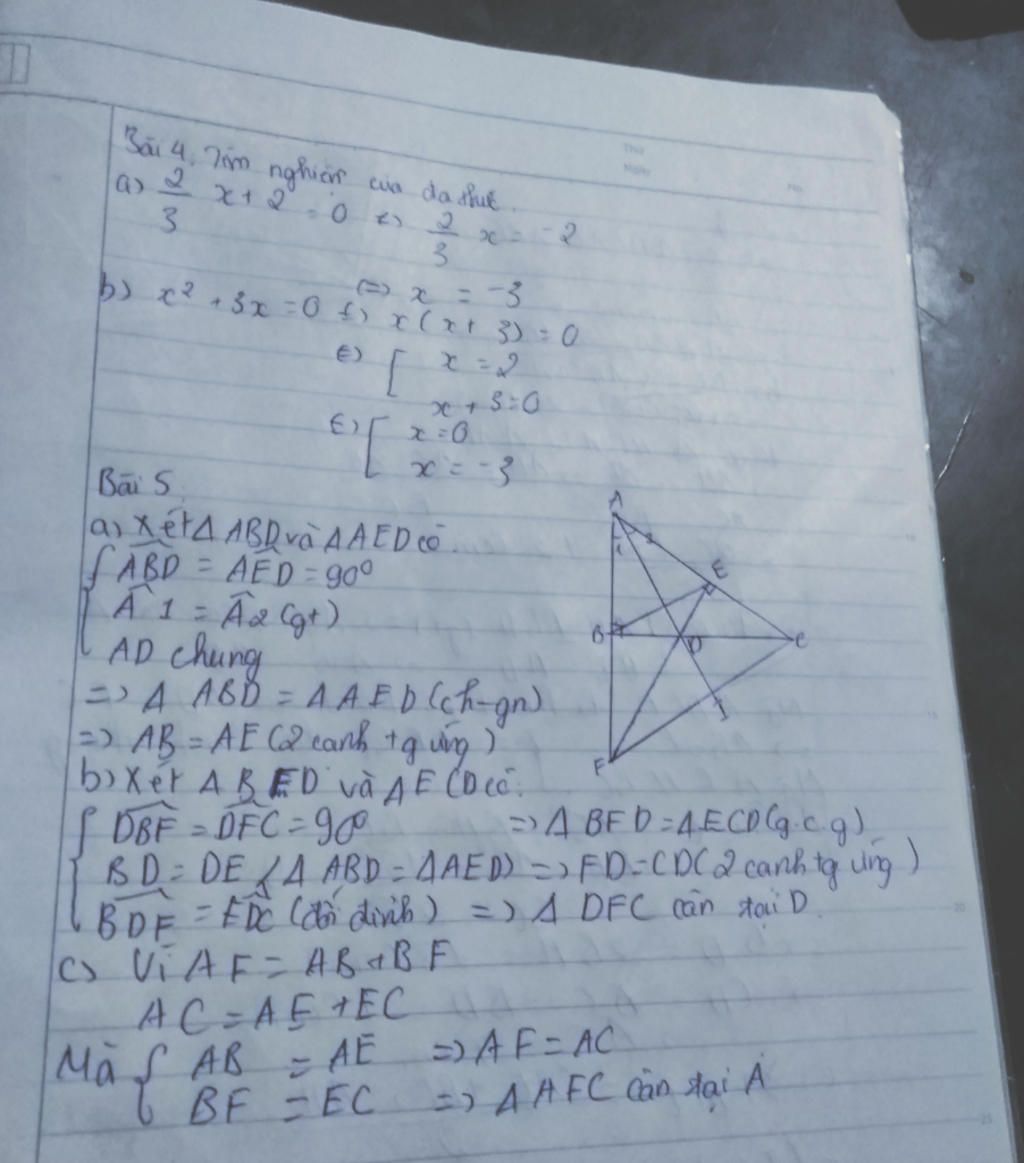 Bài 4. Tìm nghiệm của đa thức.
a) 2/3 x + 2 = 0 <=> 2/3 x = -2
<=> x = -3
b) x² + 3x = 0 <=> x(x + 3) = 0
<=> [ x = 2
x + 3 = 0
<=> [ x = 0
x = -3
Bài 5
a, Xét Δ ABD và Δ AED có.
{ ABD̂ = AED̂ = 90°
Â1 = Â2 (gt)
AD chung
=> Δ ABD = Δ AED (ch-gn)
=> AB = AE (2 cạnh tg ứng)
b) Xét Δ BED và Δ ECD có:
{ DBF̂ = DFĈ = 90° => Δ BFD = Δ ECD (g.c.g)
BD = DE (Δ ABD = Δ AED) => FD = CD (2 cạnh tg ứng)
BDF̂ = EDĈ (đối đỉnh) => Δ DFC cân tại D.
c) Vì AF = AB + BF
AC = AE + EC
Mà { AB = AE => AF = AC
BF = EC => Δ AFC cân tại A
A
1 2
E
B
D
C
I
F